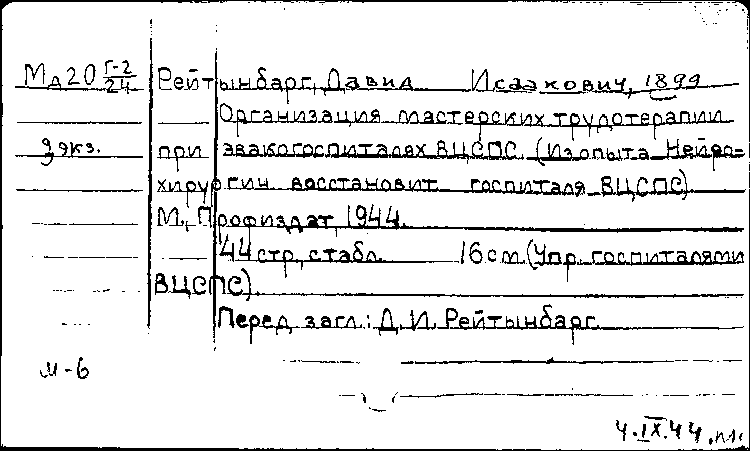 Мд20 Г-2/24 Рейтынбарг, Давид Исаакович, 1899
Организация мастерских трудотерапии
2 экз. при эвакогоспиталях ВЦСПС. (Из опыта Нейро-
хирургич. восстановит госпиталя ВЦСПС)
М., Профиздат, 1944.
44 стр., с табл. 16 см. (Упр. госпиталями
ВЦСПС).
Перед загл.: Д.И. Рейтынбарг.
м-6
4.IX.44